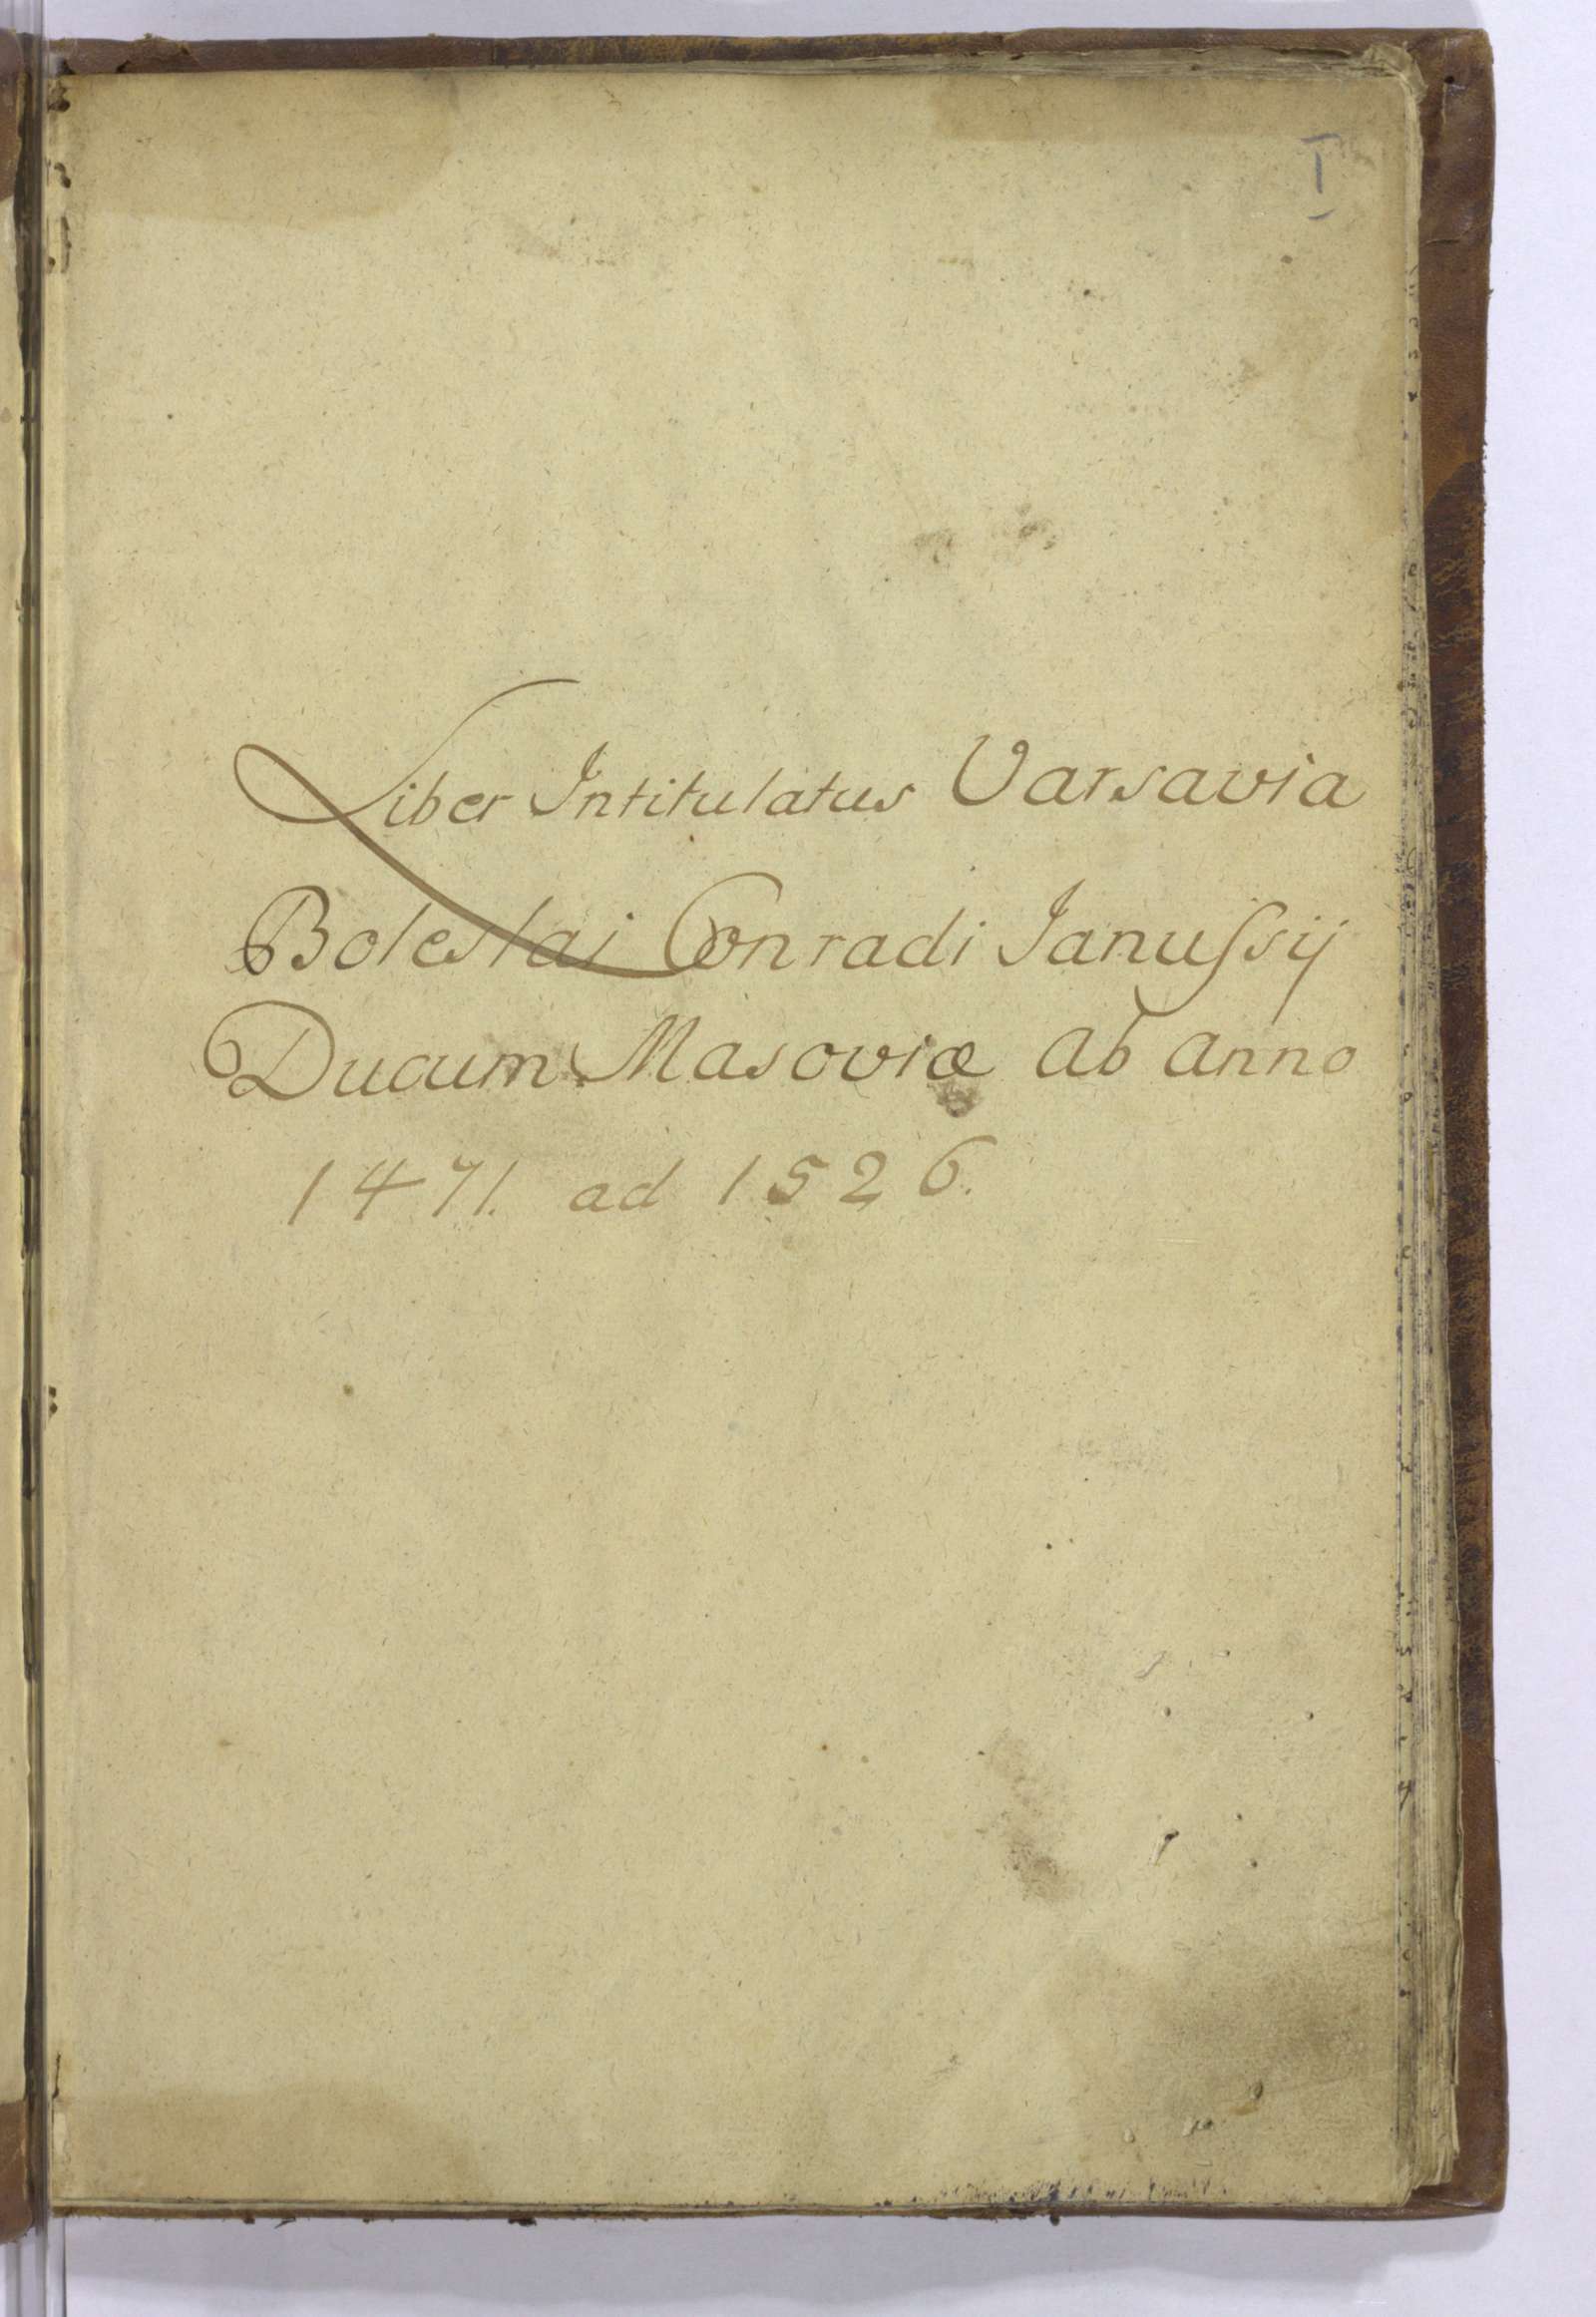 I
Liber Intitulatus Varsavia
Boleslai Conradi Janussij
Ducum Masoviæ ab anno
1471. ad 1526.